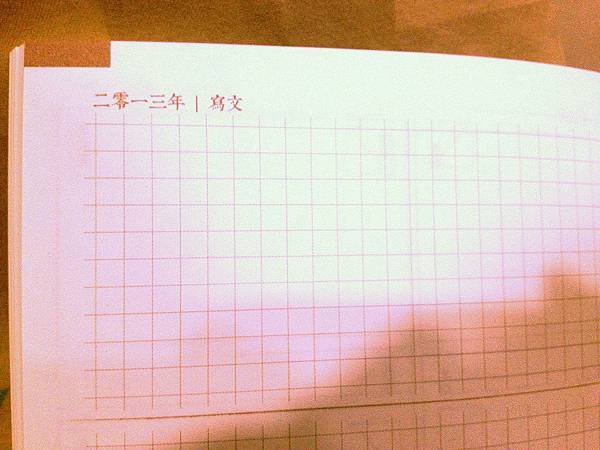 二零一三年 | 寫文